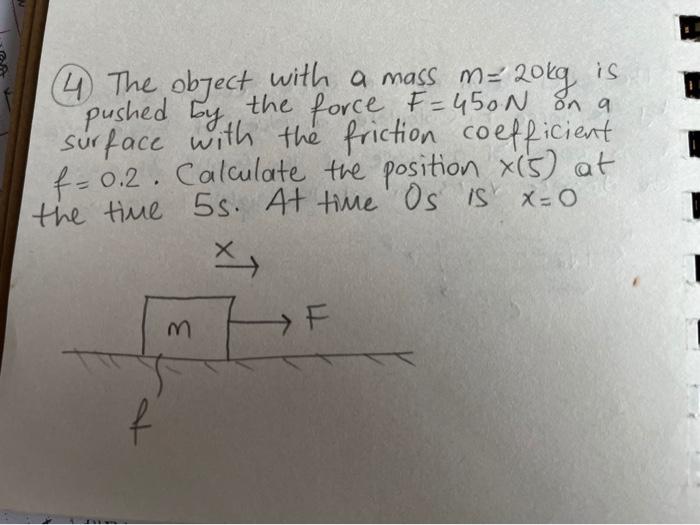 4 The object with a mass m= 20kg is
pushed by the force F=450N on a
surface with the friction coefficient
f=0.2. Calculate the position x(5) at
the time 5s. At time 0s is x=0
x
m
F
f